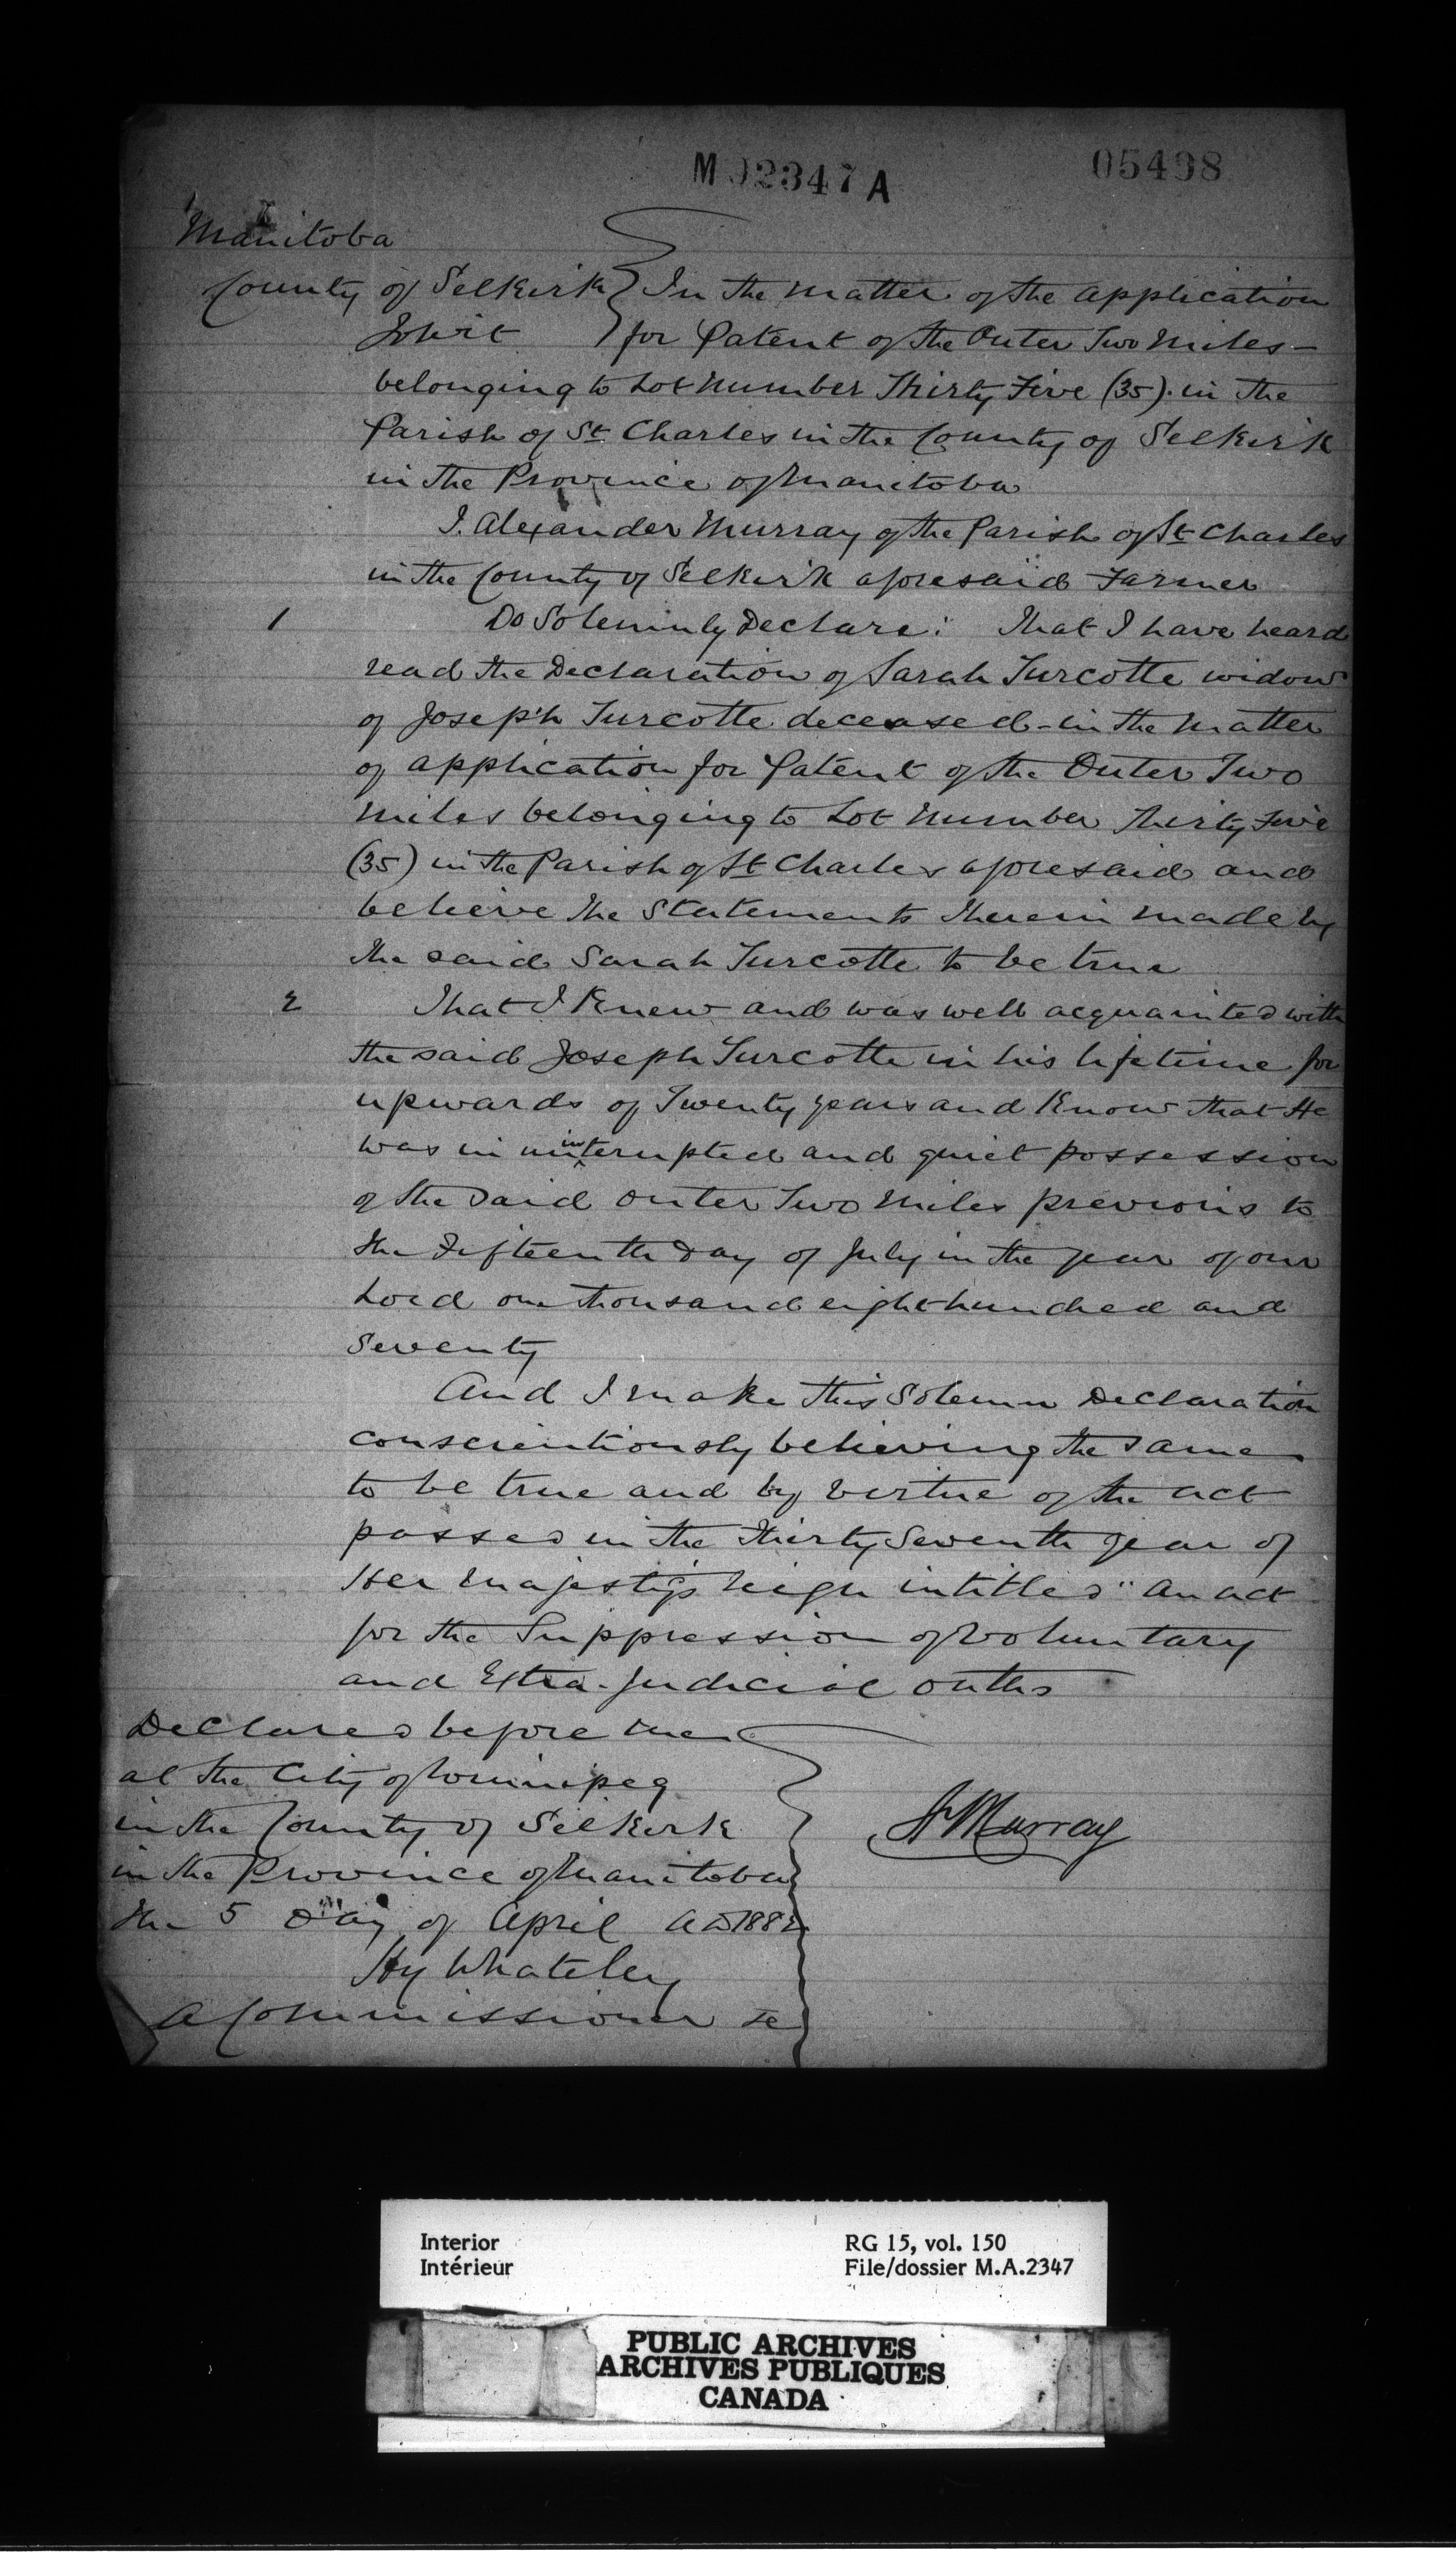 M 02347 A
05498
Manitoba
County of Selkirk } In the matter of the application
To wit } for Patent of the Outer Two Miles -
belonging to Lot Number Thirty Five (35). in the
Parish of St Charles in the County of Selkirk
in the Province of Manitoba
I. Alexander Murray of the Parish of St Charles
in the County of Selkirk aforesaid Farmer
1 Do Solemnly Declare: That I have heard
read the Declaration of Sarah Turcotte widow
of Joseph Turcotte deceased - in the matter
of application for Patent of the Outer Two
Miles belonging to Lot Number Thirty Five
(35) in the Parish of St Charles aforesaid and
believe the Statements therein made by
the said Sarah Turcotte to be true
2 That I Knew and was well acquainted with
the said Joseph Turcotte in his lifetime for
upwards of Twenty years and Know that He
was in uninterupted and quiet possession
of the said outer Two Miles previous to
the Fifteenth Day of July in the year of our
Lord one thousand eight hundred and
Seventy
And I make this Solemn Declaration
conscientiously believing the same
to be true and by virtue of the act
passed in the Thirty Seventh year of
Her Majesty's reign intitled "An act
for the Suppression of Voluntary
and Extra-Judicial Oaths
Declared before me
at the City of Winnipeg
in the County of Selkirk
in the Province of Manitoba
the 5 Day of April AD 1882
A Murray
Hy Whateley
A Commissioner &c
Interior
Intérieur
RG 15, vol. 150
File/dossier M.A.2347
PUBLIC ARCHIVES
ARCHIVES PUBLIQUES
CANADA